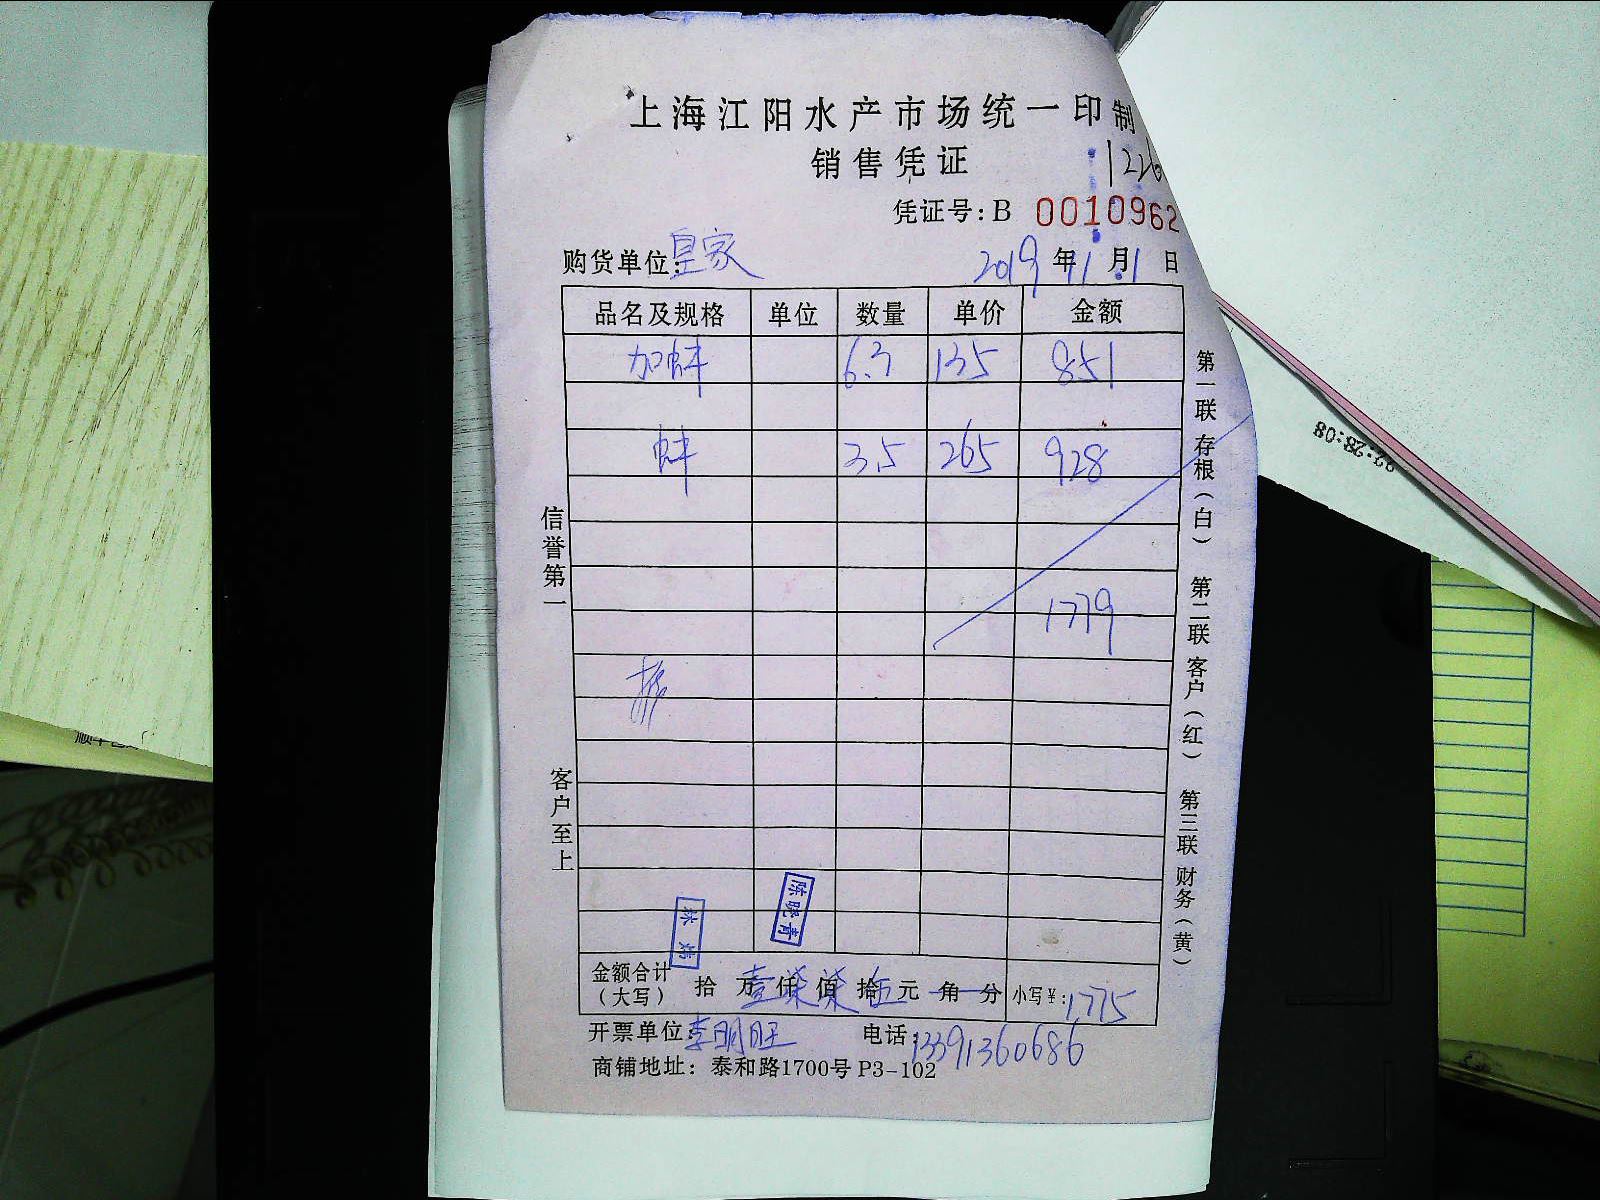 上海江阳水产市场统一印制
销售凭证
凭证号: B 0010962
购货单位: 皇家 2019 年 11 月 1 日
品名及规格 单位 数量 单价 金额
加蚌 6.3 135 851
蚌 3.5 265 928
1779
信誉第一
客户至上
第一联 存根（白） 第二联 客户（红） 第三联 财务（黄）
陈晓青
金额合计（大写） 拾 万 壹 仟 柒 佰 柒 拾 伍 元 角 分 小写￥: 1775
开票单位: 李明旺 电话: 13391360686
商铺地址: 泰和路1700号 P3-102
22:28:08